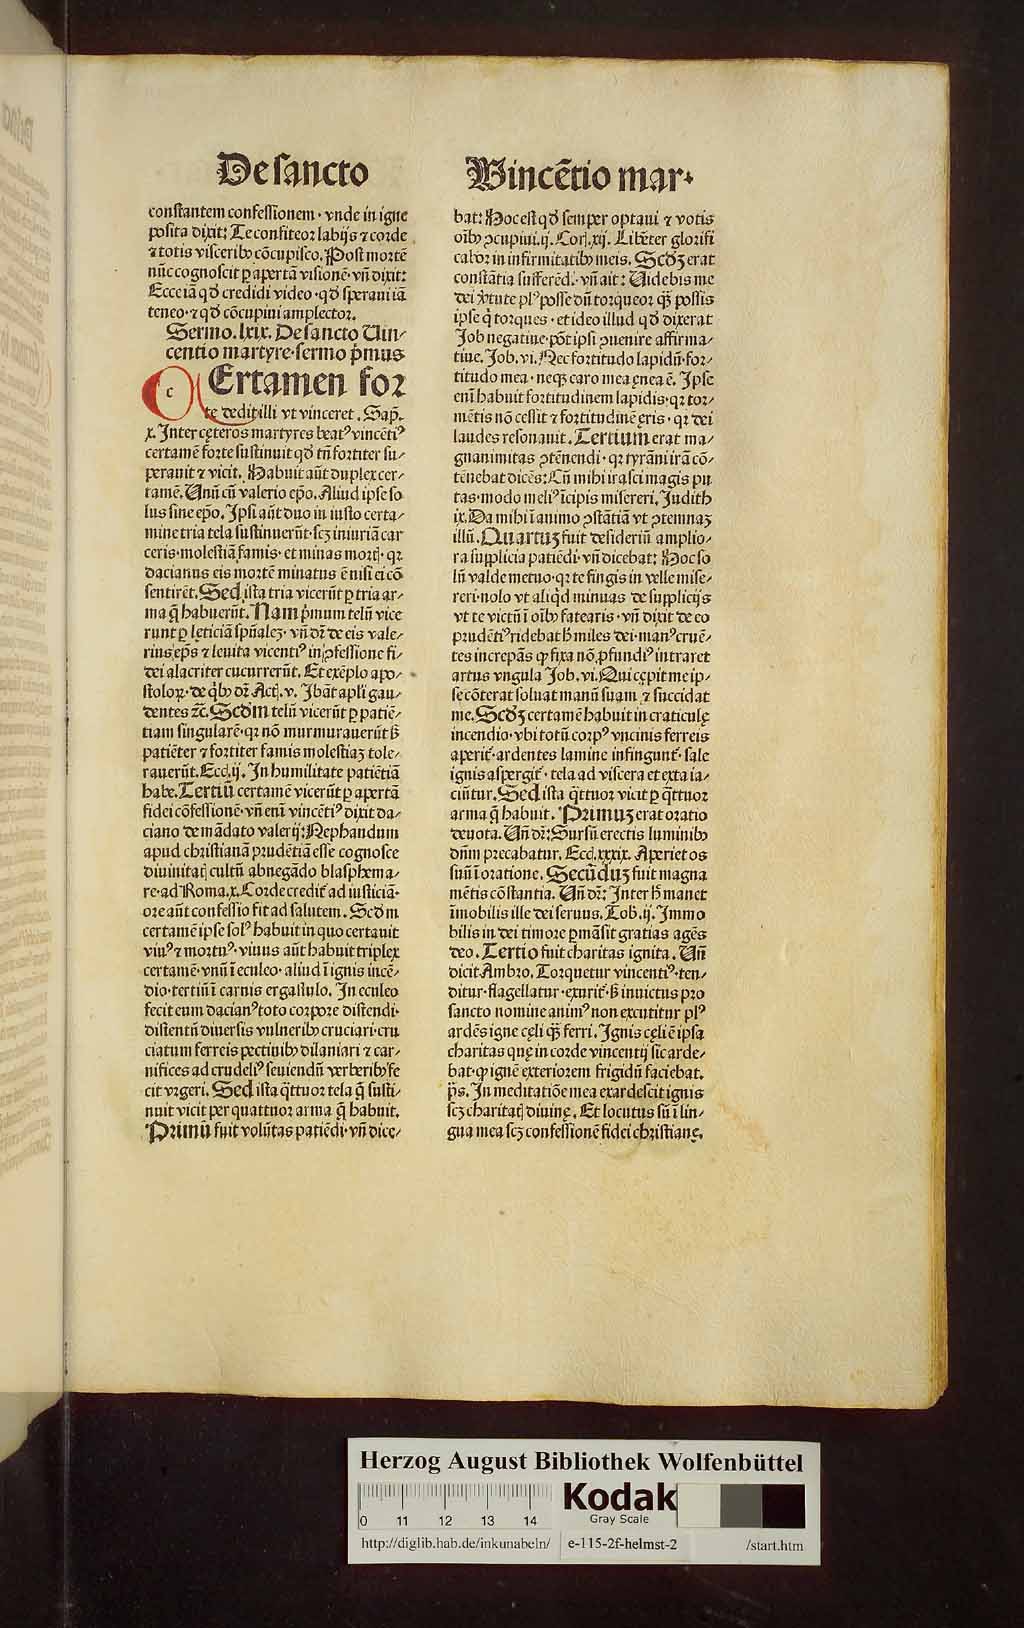 De sancto
Vincētio mar.
constantem confessionem · vnde in igne
posita dixit: Te confiteor labijs ⁊ corde
⁊ totis visceribꝰ cōcupisco. Post mortē
nūc cognoscit ꝑ apertā visionē · vn̄ dixit:
Ecce iā qd̄ credidi video · qd̄ speraui iā
teneo · ⁊ qd̄ cōcupiui amplector.
Sermo. lxix. De sancto Uin⸗
centio martyre · sermo pͥmus
c ERtamen for
te dedit illi vt vinceret. Sap̄.
x. Inter cęteros martyres beatꝰ vincētiꝰ
certamē forte sustinuit qd̄ tn̄ fortiter su⸗
perauit ⁊ vicit. Habuit aūt duplex cer⸗
tamē. Vnū cū valerio ep̄o. Aliud ipse so
lus sine ep̄o. Ipsi aūt duo in iusto certa⸗
mine tria tela sustinuerūt · scꝫ iniuriā car
ceris · molestiā famis · et minas mortꝭ · qꝛ
dacianus eis mortē minatus ē nisi ei cō
sentirēt. Sed ista tria vicerūt ꝑ tria ar⸗
ma q̄ habuerūt. Nam pͥmum telū vice
runt ꝑ lęticiā spūalē · vn̄ dr̄ de eis vale⸗
rius ep̄s ⁊ leuita vicentiꝰ in ꝓfessione fi⸗
dei alacriter cucurrerūt. Et exēplo apo⸗
stoloꝝ · de qͥbꝰ dr̄ Actꝭ. v. Ibāt apl̄i gau⸗
dentes ⁊c̄. Scd̄m telū vicerūt ꝑ patiē⸗
tiam singularē · qꝛ nō murmurauerūt sꝫ
patiēter ⁊ fortiter famis molestiaꝫ tole⸗
rauerūt. Ecci. ij. In humilitate patiētiā
habe. Tertiū certamē vicerūt ꝑ apertā
fidei cōfessionē · vn̄ enī vincētiꝰ dixit da⸗
ciano de mādato valerij: Nephandum
apud christianā prudētiā esse cognosce
diuinitatꝭ cultū abnegādo blasphema⸗
re · ad Roma. x. Corde creditͬ ad iusticiā ·
ore aūt confessio fit ad salutem. Scd̄m
certamē ipse solꝰ habuit in quo certauit
viuꝰ ⁊ mortuꝰ · viuus aūt habuit triplex
certamē · vnū ī eculeo · aliud ī ignis incē⸗
dio · tertiū ī carnis ergastulo. In eculeo
fecit eum dacianꝰ toto corpore distendi ·
distentū diuersis vulneribꝰ cruciari · cru
ciatum ferreis pectinibꝰ dilaniari ⁊ car⸗
nifices ad crudeliꝰ seuiendū verberibꝰ fe
cit vrgeri. Sed ista qͣttuor tela q̄ susti⸗
nuit vicit per quattuor arma q̄ habuit.
Primū fuit volūtas patiēdi · vn̄ dice⸗
bat: Hoc est qd̄ semper optaui ⁊ votis
oībꝰ ꝯcupiui. ij. Corꝭ. xij. Libēter glorifi
cabor in infirmitatibꝰ meis. Scd̄ꝫ erat
constātia sufferēdi · vn̄ ait: Uidebis me
dei ꝟtute plꝰ posse dū torqueor qͣꝫ possis
ipse qͥ torques · et ideo illud qd̄ dixerat
Job negatiue · pōt ipsi ꝯuenire affirma⸗
tiue. Job. vi. Nec fortitudo lapidū for⸗
titudo mea · neqꝫ caro mea ęnea ē. Ipse
enī habuit fortitudinem lapidis · qꝛ tor⸗
mētis nō cessit ⁊ fortitudinē ęris · qꝛ dei
laudes resonauit. Tertium erat ma⸗
gnanimitas ꝯtēnendi · qꝛ tyrāni irā cō⸗
tēnebat dicēs: Cū mihi irasci magis pu
tas · modo meliꝰ īcipis misereri. Judith
ix. Da mihi ī animo ꝯstātiā vt ꝯtemnaꝫ
illū. Quartuꝫ fuit desideriū amplio⸗
ra supplicia patiēdi · vn̄ dicebat: Hoc so
lū valde metuo · qꝛ te fingis in velle mise⸗
reri · nolo vt aliqͥd minuas de supplicijs
vt te victū ī oībꝰ fatearis · vn̄ dixit de eo
prudētiꝰ ridebat h̄ miles dei · manꝰ cruē⸗
tes increpās ꝙ fixa nō ꝓfundiꝰ intraret
artus vngula Job. vi. Qui cępit me ip⸗
se cōterat soluat manū suam ⁊ succidat
me. Scd̄ꝫ certamē habuit in craticulę
incendio · vbi totū corpꝰ vncinis ferreis
aperitͬ · ardentes lamine infinguntͬ · sale
ignis aspergitͬ · tela ad viscera et exta ia⸗
ciūtur. Sed ista qͣttuor vicit ꝑ qͣttuor
arma q̄ habuit. Primuꝫ erat oratio
deuota. Vn̄ dr̄: Sursū erectis luminibꝰ
dn̄m precabatur. Ecci. xxxix. Aperiet os
suū ī oratione. Secūduꝫ fuit magna
mētis cōstantia. Vn̄ dr̄: Inter h̄ manet
īmobilis ille dei seruus. Tob. ij. Immo
bilis in dei timore ꝑmāsit gratias agēs
deo. Tertio fuit charitas ignita. Vn̄
dicit Ambro. Torquetur vincentiꝰ · ten⸗
ditur · flagellatur · exuritͬ · sꝫ inuictus pro
sancto nomine animꝰ non excutitur plꝰ
ardēs igne cęli qͣꝫ ferri. Ignis cęli ē ipsa
charitas quę in corde vincentij sic arde⸗
bat · ꝙ ignē exteriorem frigidū faciebat.
p̄s. In meditatiōe mea exardescit ignis
scꝫ charitatꝭ diuinę. Et locutus sū ī lin⸗
gua mea scꝫ confessionē fidei christianę.
Herzog August Bibliothek Wolfenbüttel
0 11 12 13 14
Kodak
Gray Scale
http://diglib.hab.de/inkunabeln/ e-115-2f-helmst-2 /start.htm